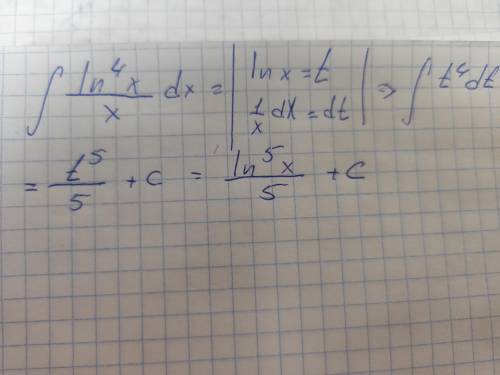 ∫ ln⁴x/x dx = | ln x = t, 1/x dx = dt | => ∫ t⁴ dt
= t⁵/5 + c = ln⁵x/5 + c